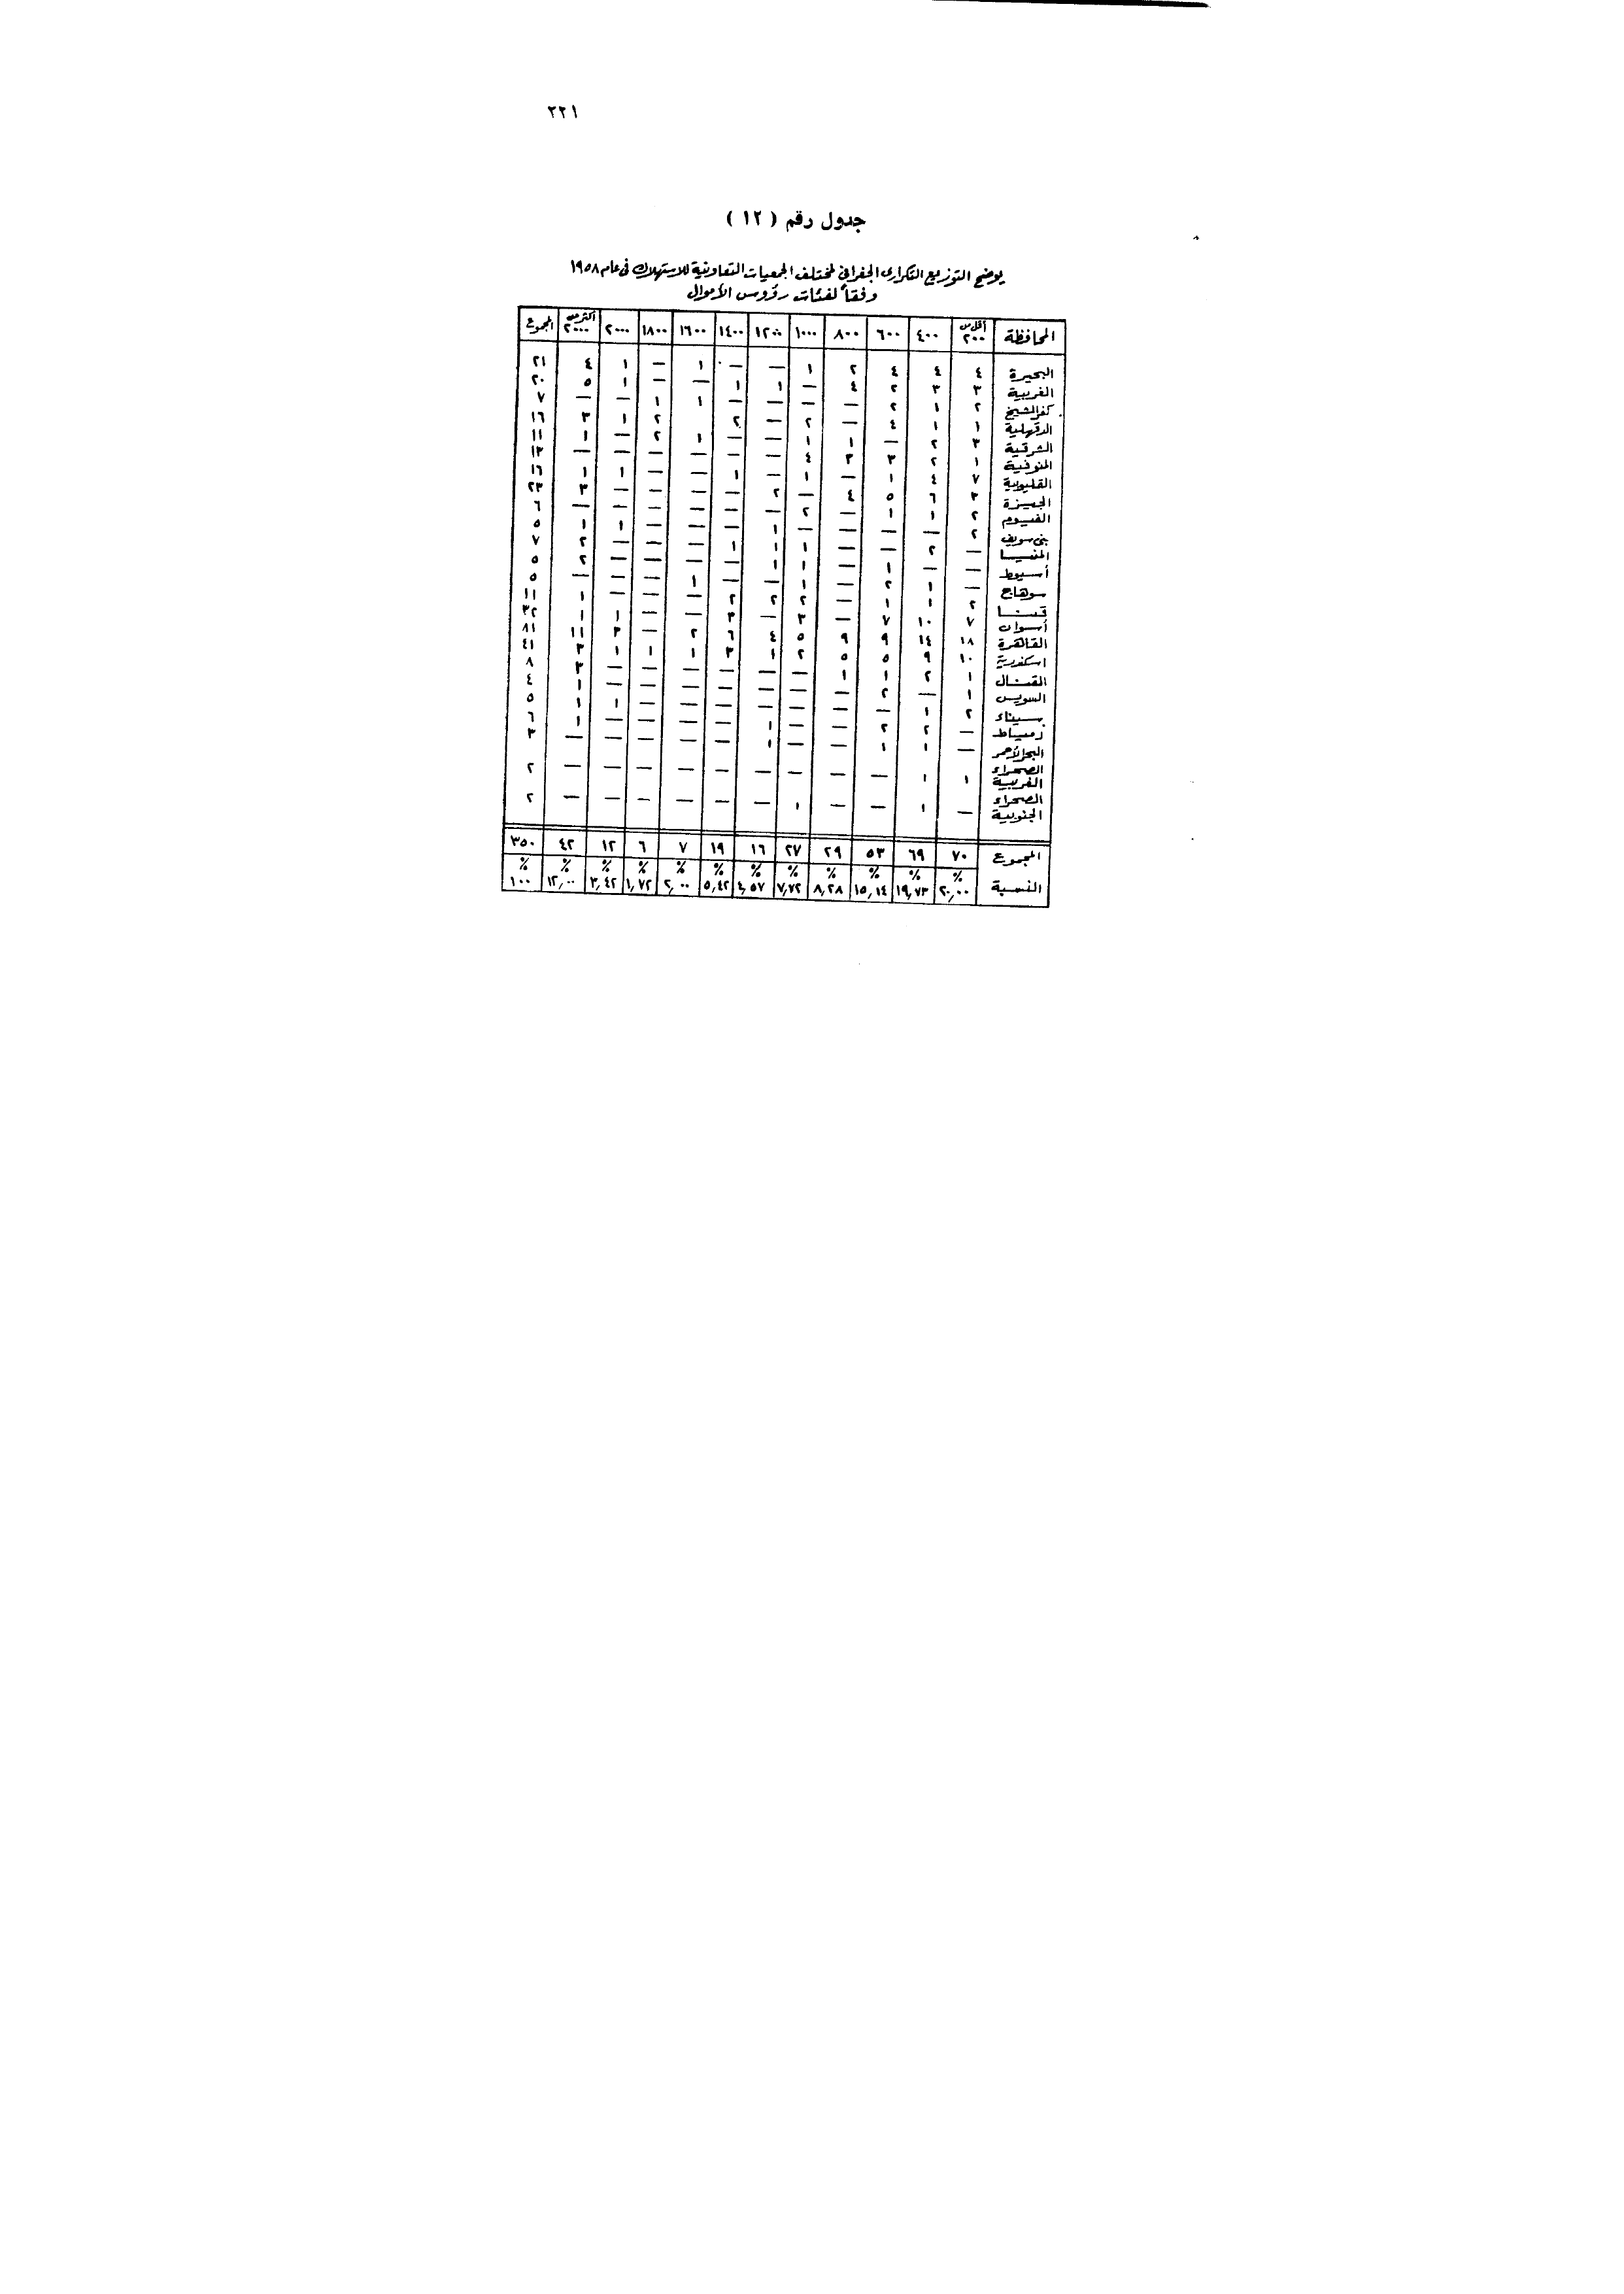 ٢٢١
جدول رقم ( ١٢ )
يوضح التوزيع التكرارى الجغرافى لمختلف الجمعيات التعاونية للاستهلاك فى عام ١٩٥٨
وفقاً لفئات رؤوس الأموال
المحافظة أقل من ٢٠٠ ٤٠٠ ٦٠٠ ٨٠٠ ١٠٠٠ ١٢٠٠ ١٤٠٠ ١٦٠٠ ١٨٠٠ ٢٠٠٠ أكثر من ٢٠٠٠ المجموع
البحيرة ٤ ٤ ٤ ٢ ١ — — ١ — ١ ٤ ٢١
الغربية ٣ ٣ ٢ ٤ — ١ ١ — — ١ ٥ ٢٠
كفر الشيخ ٢ ١ ٢ — — — — ١ ١ — — ٧
الدقهلية ١ ١ ٤ — ٢ — ٢ — ٢ ١ ٣ ١٦
الشرقية ٣ ٢ — ١ ١ — — ١ ٢ — ١ ١١
المنوفية ١ ٢ ٣ ٣ ٤ — — — — — — ١٣
القليوبية ٧ ٤ ١ — ١ — ١ — — ١ ١ ١٦
الجيزة ٣ ٦ ٥ ٤ — ٢ — — — — ٣ ٢٣
الفيوم ٢ ١ ١ — ٢ — — — — — — ٦
بنى سويف ٢ — — — — ١ — — — ١ ١ ٥
المنيا — ٢ — — ١ ١ ١ — — — ٢ ٧
أسيوط — — ١ — ١ ١ — — — — ٢ ٥
سوهاج — ١ ٢ — ١ — — ١ — — — ٥
قنا ٢ ١ ١ — ٢ ٢ ٢ — — — ١ ١١
أسوان ٧ ١٠ ٧ — ٣ — ٣ — — ١ ١ ٣٢
القاهرة ١٨ ١٤ ٩ ٩ ٥ ٤ ٦ ٢ — ٣ ١١ ٨١
اسكندرية ١٠ ٩ ٥ ٥ ٢ ١ ٣ ١ ١ ١ ٣ ٤١
القنال ١ ٢ ١ ١ — — — — — — ٣ ٨
السويس ١ — ٢ — — — — — — — ١ ٤
سيناء ٢ ١ — — — — — — — ١ ١ ٥
دمياط — ٢ ٢ — — ١ — — — — ١ ٦
البحر الأحمر — ١ ١ — — ١ — — — — — ٣
الصحراء الغربية ١ ١ — — — — — — — — — ٢
الصحراء الجنوبية — ١ — — ١ — — — — — — ٢
المجموع ٧٠ ٦٩ ٥٣ ٢٩ ٢٧ ١٦ ١٩ ٧ ٦ ١٢ ٤٢ ٣٥٠
النسبة % ٢٠,٠٠ % ١٩,٧٣ % ١٥,١٤ % ٨,٢٨ % ٧,٧٢ % ٤,٥٧ % ٥,٤٢ % ٢,٠٠ % ١,٧٢ % ٣,٤٢ % ١٢,٠٠ % ١٠٠